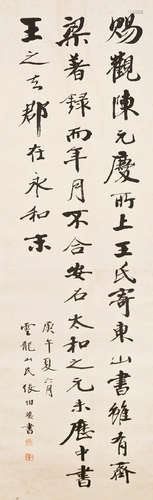 賜觀陳元慶所上王氏寄東山書雖有齊
梁著錄而年月不合安石太和之元未歷中書
王之去郡在永和末
庚午夏六月
雲龍山民張伯英書